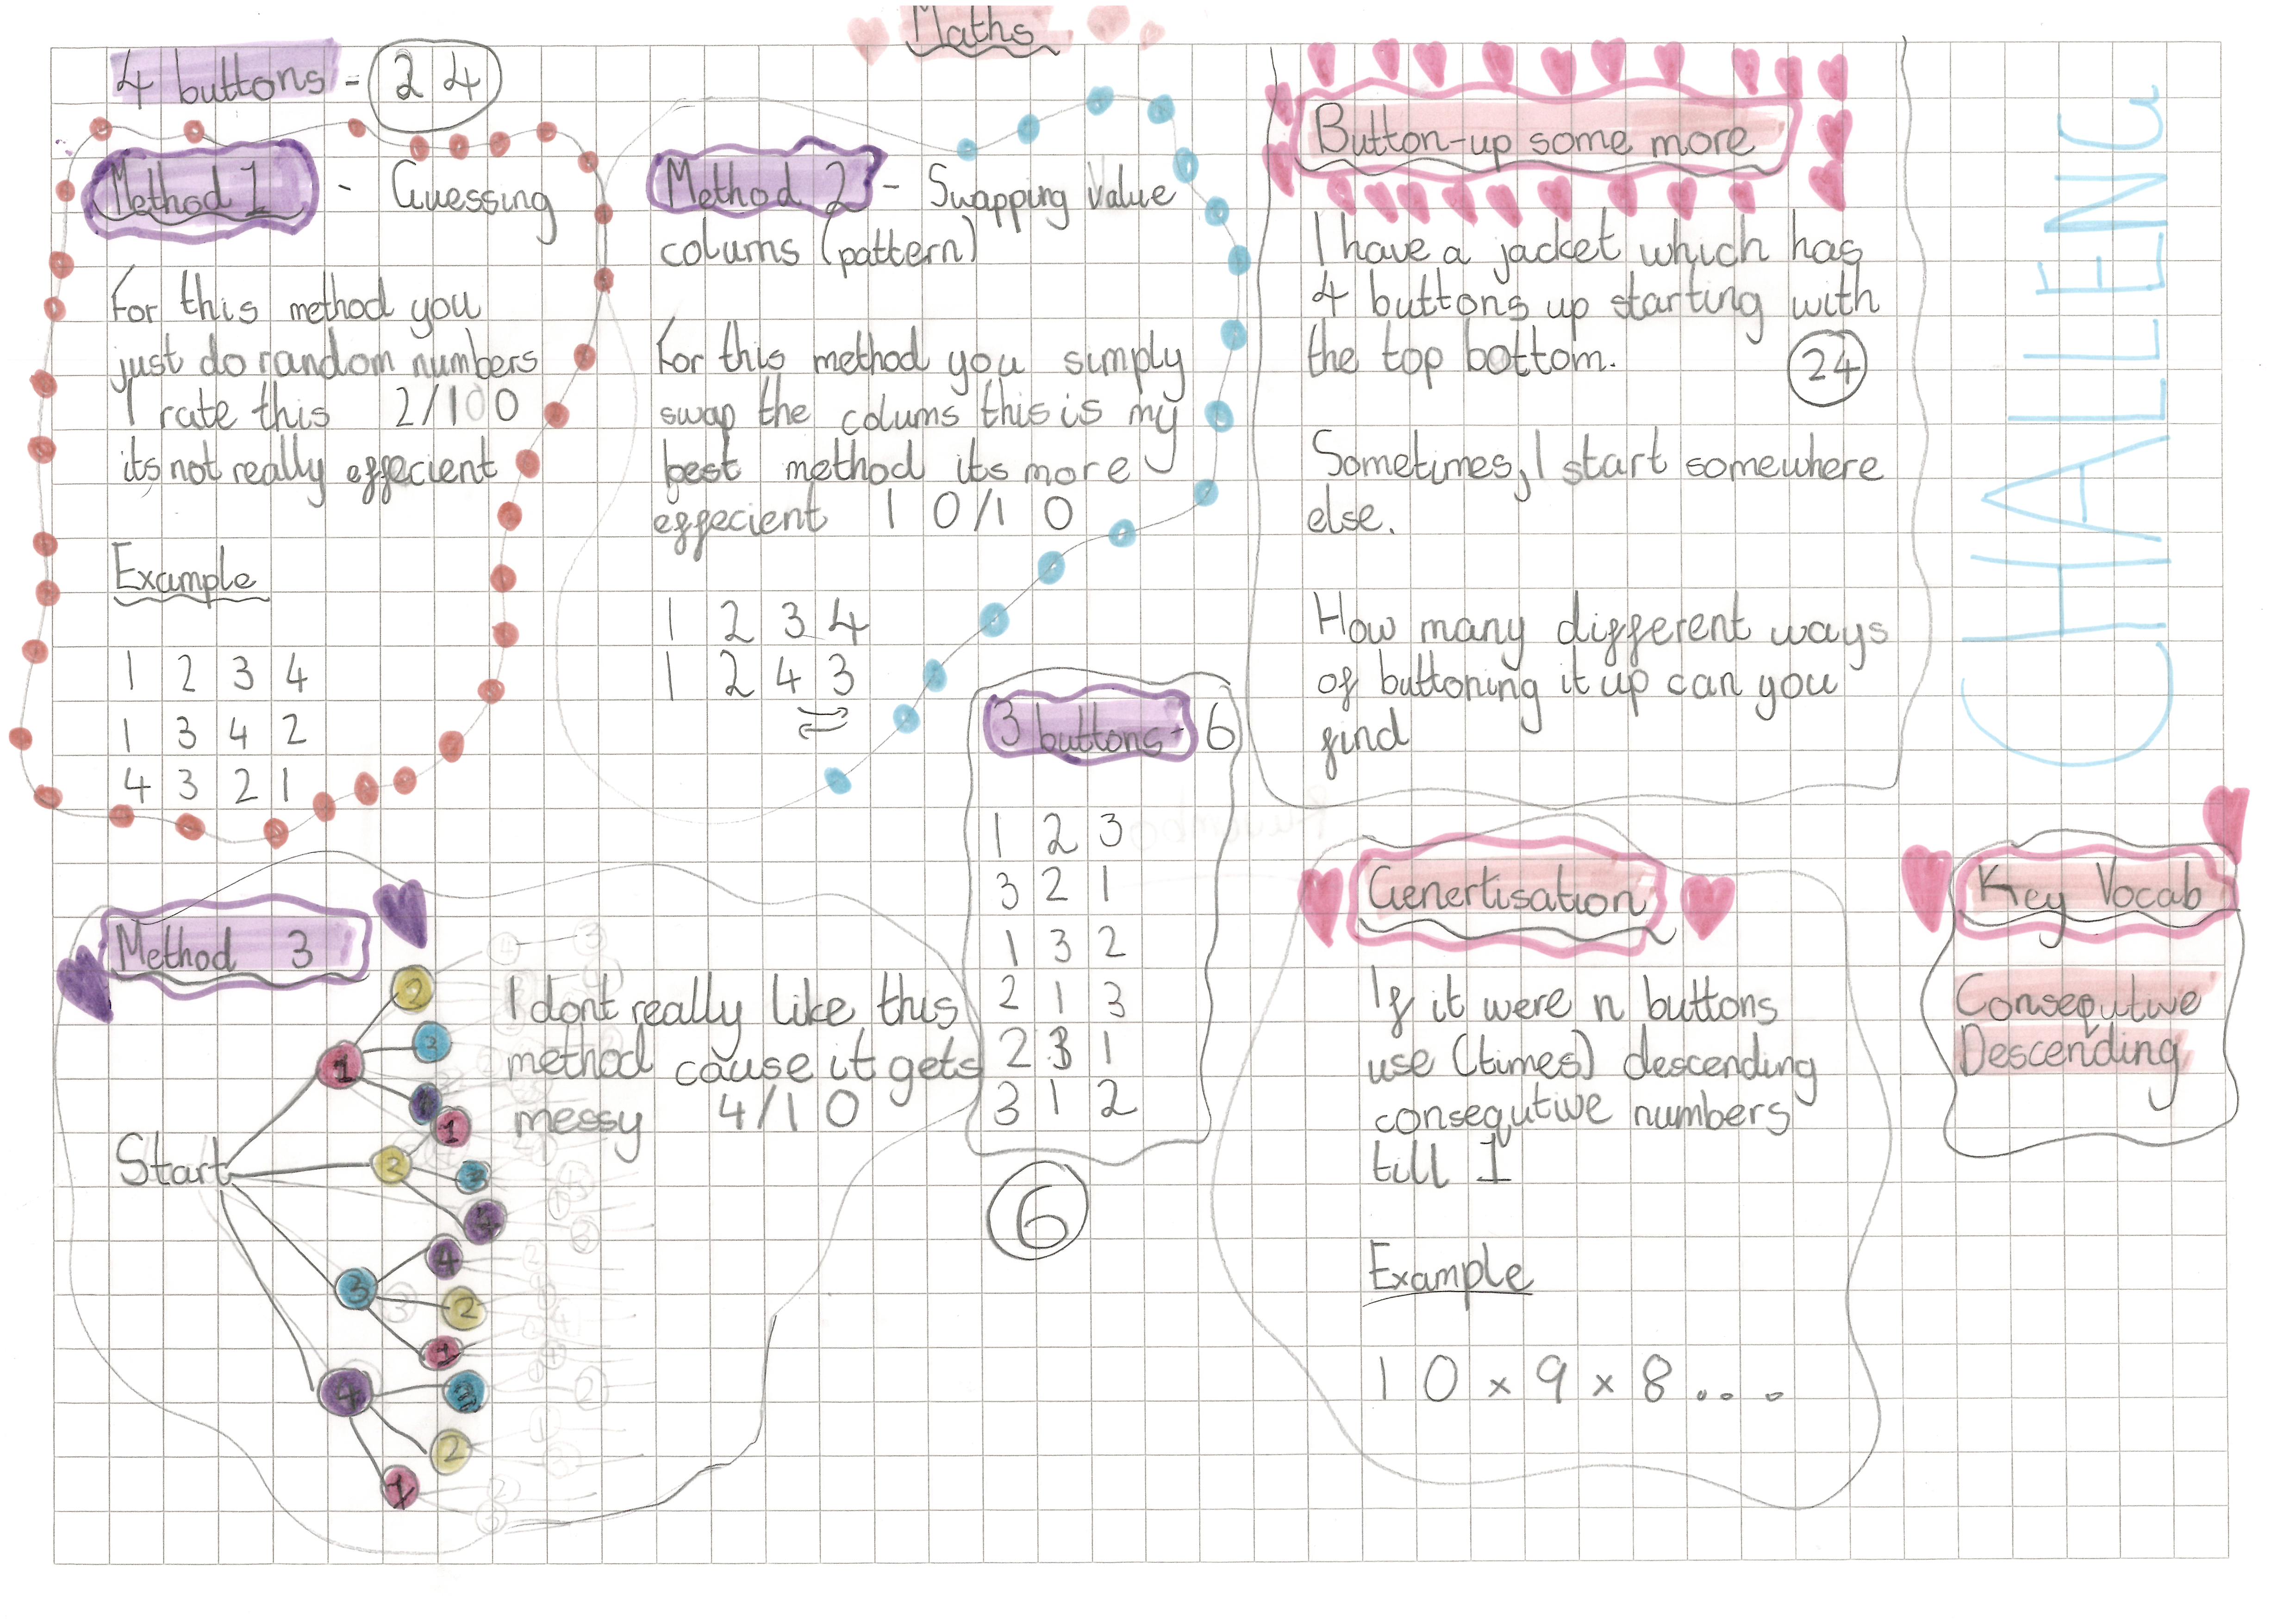 Maths
4 buttons - 24
Method 1 - Guessing
For this method you
just do random numbers
I rate this 2/100
its not really effecient
Example
1 2 3 4
1 3 4 2
4 3 2 1
Method 2 - Swapping Value
colums (pattern)
For this method you simply
swap the colums this is my
best method its more
effecient 10/10
1 2 3 4
1 2 4 3
3 buttons - 6
1 2 3
3 2 1
1 3 2
2 1 3
2 3 1
3 1 2
6
Method 3
I dont really like this
method cause it gets
messy 4/10
Start
1
2
3
4
2
1
3
4
3
4
2
1
4
3
2
1
Button-up some more
I have a jacket which has
4 buttons up starting with
the top bottom.
24
Sometimes, I start somewhere
else.
How many different ways
of buttoning it up can you
find
CHALLENG
Genertisation
If it were n buttons
use (times) descending
consequtive numbers
till 1
Example
10 x 9 x 8 ...
Key Vocab
Consequtive
Descending